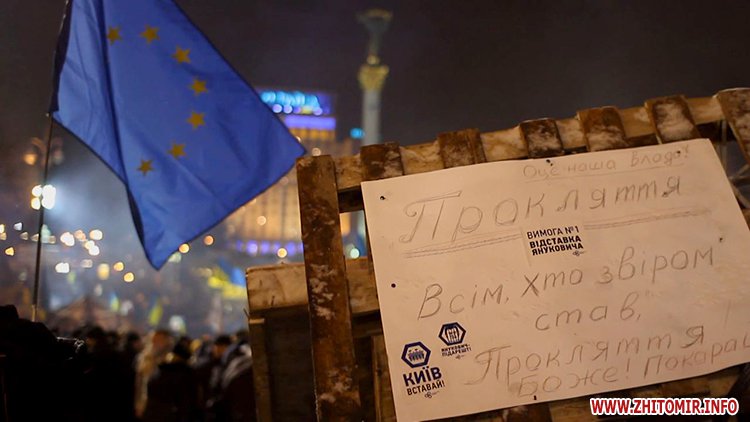 Оце наша влада!
Прокляття
ВИМОГА №1
ВІДСТАВКА
ЯНУКОВИЧА
Всім, хто звіром
став,
Прокляття
Боже! Покарай
ЯНУКОВИЧ-
ПІДАРЕШТ!
КИЇВ
ВСТАВАЙ!
WWW.ZHITOMIR.INFO